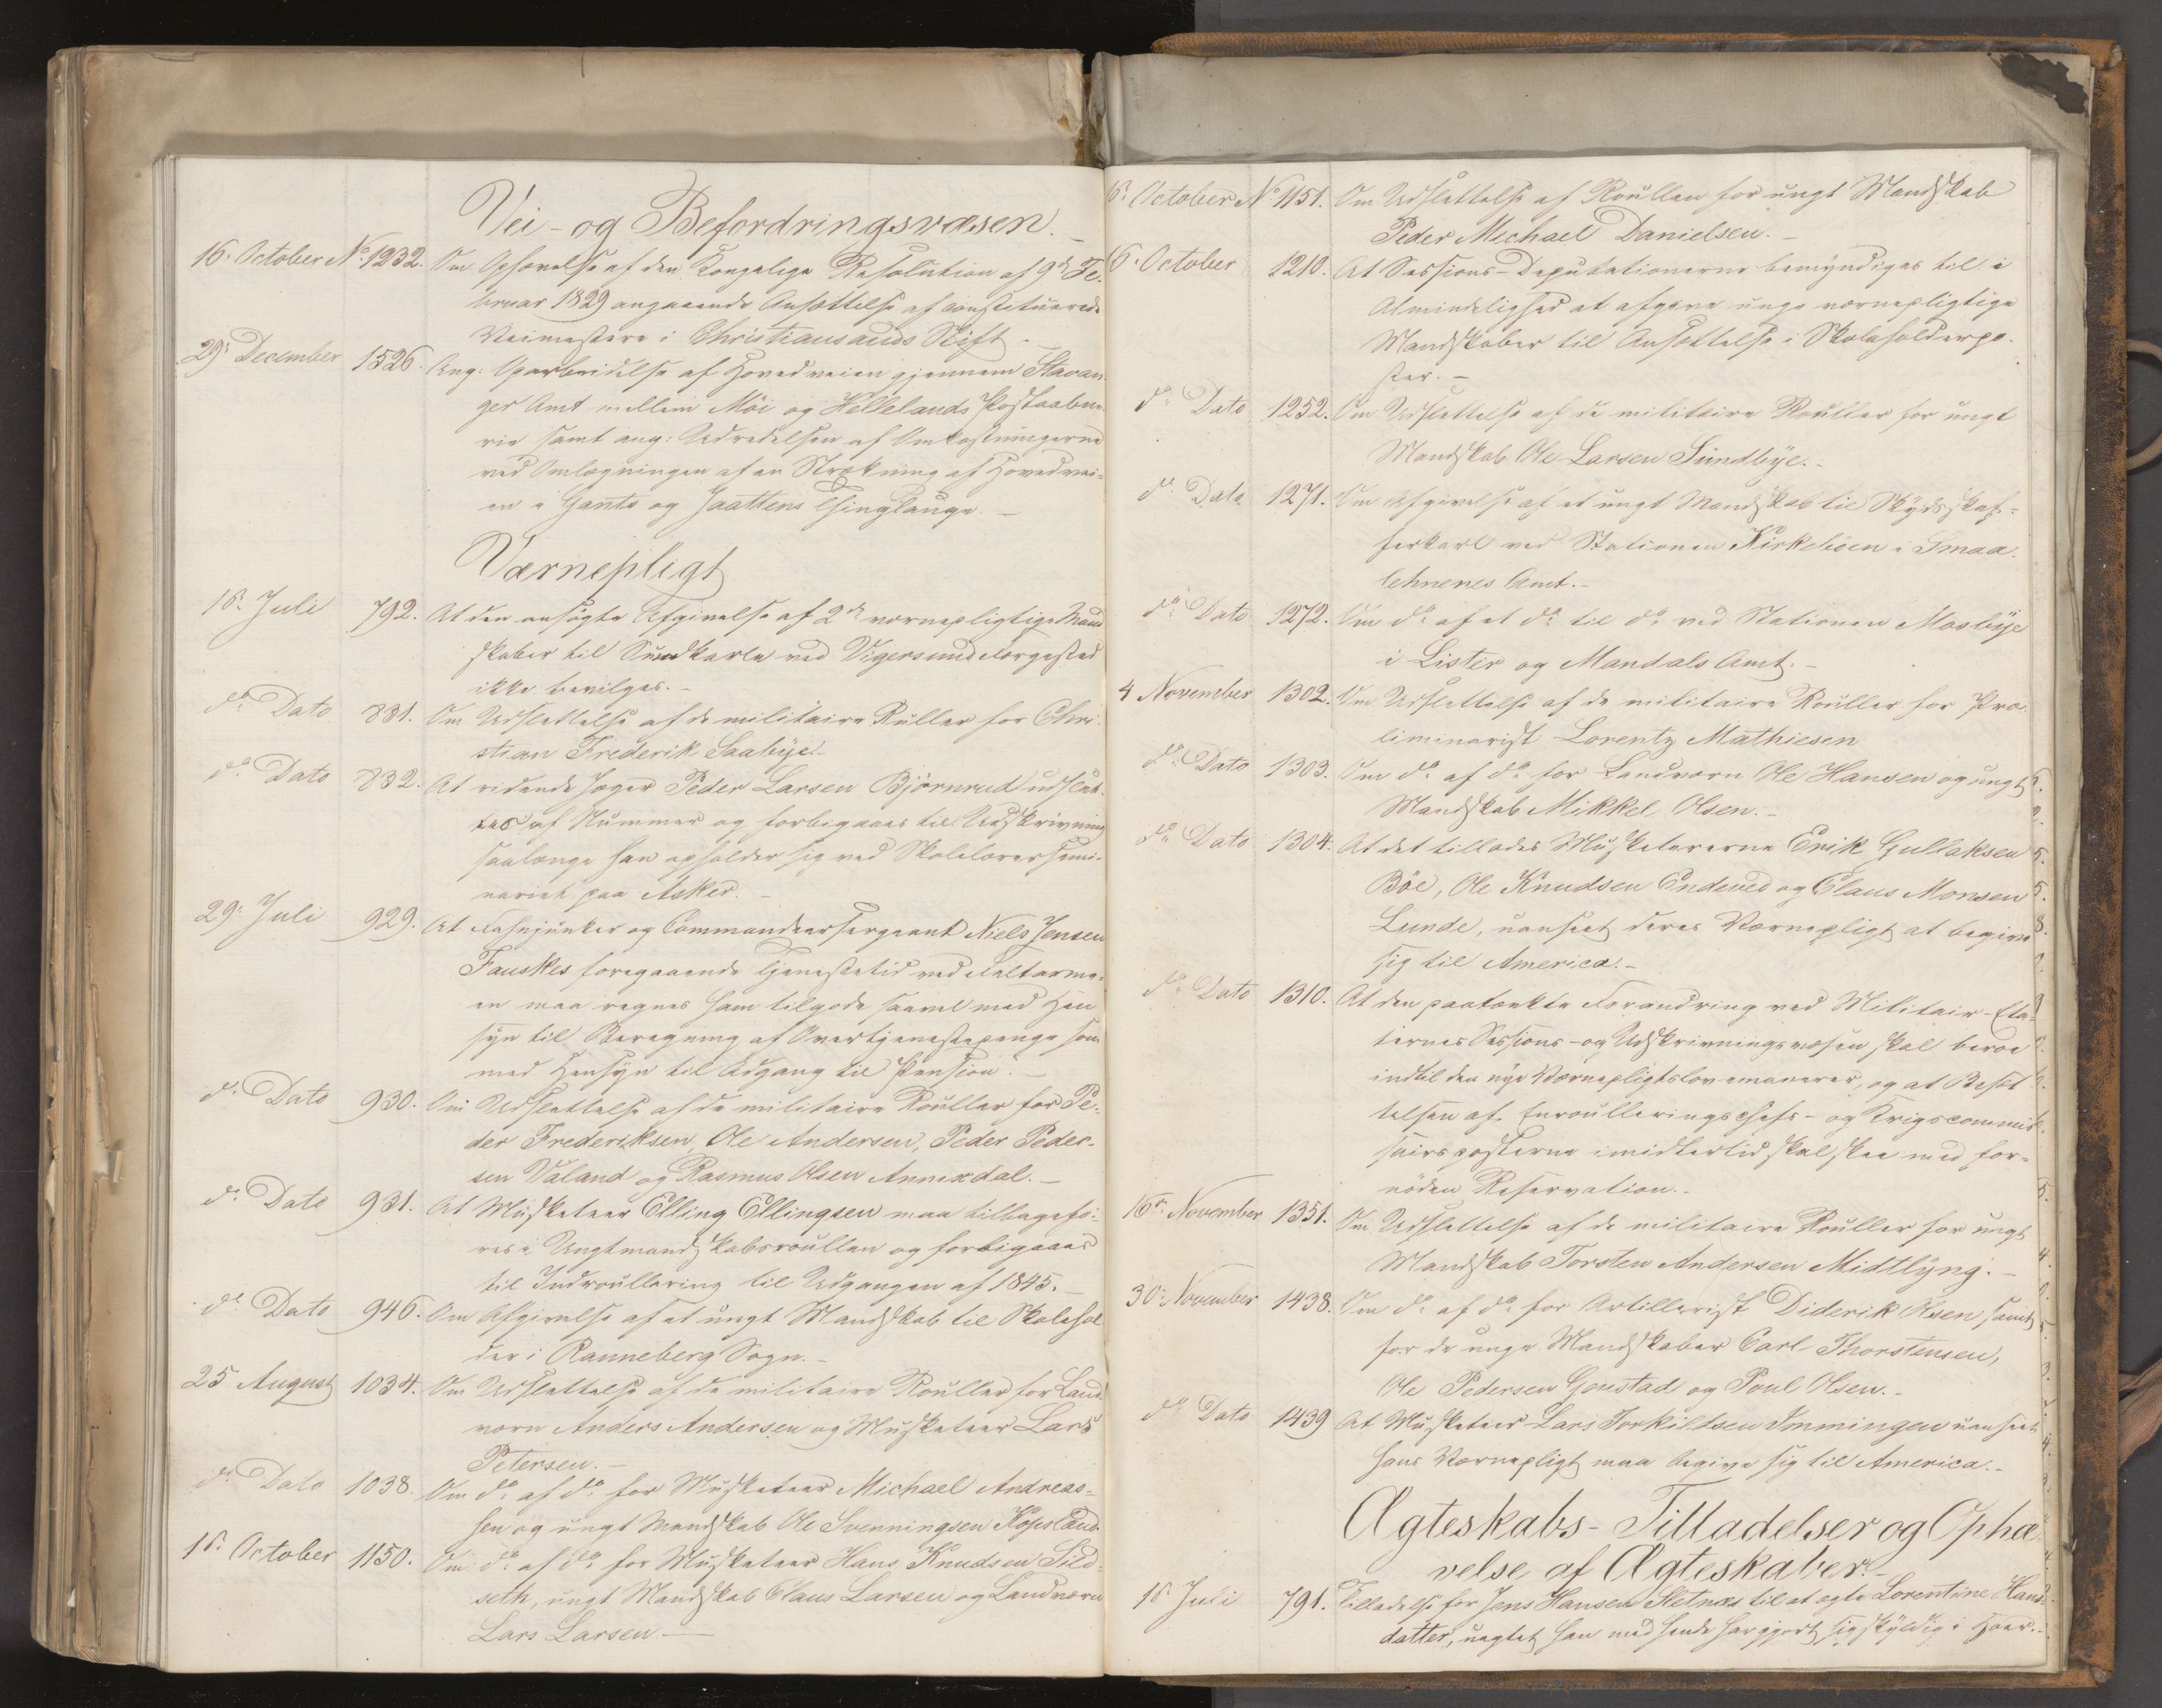 Vei- og Befordringsvæsen.
16. October No. 1232. Om Ophævelse af den Kongelige Resolution af 9de Fe-
bruar 1829 angaaende Ansættelse af constituerede
Veimestere i Christiansands Stift.
29. December 1526. Ang: Oparbeidelse af Hovedveien gjennem Stavan-
ger Amt mellem Möi og Hellelands Postaabne-
rie samt ang: Udredelsen af Omkostningerne
ved Omlægningen af en Strækning af Hovedvei-
en i Gants og Jaattens Thinglauge.
Værnepligt
18. Juli 792. At den ansøgte Afgivelse af 2de værnepligtige Mand
skaber til Sundkarle ved Vigersunds Færgested
ikke bevilges.
do. Dato 831. Om Udslettelse af de militaire Ruller for Chri-
stian Frederik Saabye.
do. Dato 832. At ridende Jæger Peder Larsen Björnrud udslet-
tes af Nummer og forbigaaes til Udskrivning
saalænge han opholder sig ved Skolelærersemi-
nariet paa Asker.
29. Juli 929. At Fahnjunker og Commandeersergeant Niels Jensen
Fauskes foregaaende Tjenestetid ved Feltarme-
en maa regnes ham tilgode saavel med Hen
syn til Beregning af Overtjenestepenge som
med Hensyn til Adgang til Pension.
do. Dato 930. Om Udslettelse af de militaire Rouller for Pe-
der Frederiksen, Ole Andersen, Peder Peder-
sen Valand og Rasmus Olsen Annixdal.
do. Dato 931. At Musketeer Elling Ellingsen maa tilbagefö-
res i Ungtmandskabsroullen og forbigaaes
til Indroullering til Udgangen af 1845.
do. Dato 946. Om Afgivelse af et ungt Mandskab til Skolehol
der i Ranneberg Sogn.
25 August 1034. Om Udslettelse af de militaire Rouller for Land-
værn Anders Andersen og Musketeer Lars
Petersen.
do. Dato 1038. Om do. af do. for Musketeer Michael Andreas-
sen og ungt Mandskab Ole Svenningsen
18. October 1150. Om do. af do. for Musketeer Hans Knudsen Sild-
seth, ungt Mandskab Claus Larsen og Landværn
Lars Larsen.
October No. 1151. Om Udslettelse af Roullen for ungt Mandskab
Peder Michael Danielsen.
October 1210. At Sessions-Deputationerne bemyndiges til i
Almindelighed at afgive unge værnepligtige
Mandskaber til Ansættelse i Skoleholderpo-
ster.
do. Dato 1252. Om Udslettelse af de militaire Rouller for ungt
Mandskab Ole Larsen Sundbye.
do. Dato 1271. Om Afgivelse af et ungt Mandskab til Skydsskaf-
ferkarl ved Stationen i Smaa-
lehnenes Amt.
do. Dato 1272. Om do. af et do. til do. ved Stationen Mosbye
i Lister og Mandals Amt.
4 November 1302. Om Udslettelse af de militaire Rouller for Præ-
liminarist Lorentz Mathiesen
do. Dato 1303. Om do. af do. for Landværn Ole Hansen og ungt
Mandskab Mikkel Olsen.
do. Dato 1304. At det tillades Musketererne Erik Gullaksen
Böe, Ole Knudsen Endeved og Claus Monsen
Lunde, uanseet deres Værnepligt at begive
sig til America.
do. Dato 1310. At den paatænkte Forandring ved Militair-Eta-
ternes Sessions- og Udskrivningsvæsen skal beroe
indtil den nye Værnepligtslov emanerer, og at Besæt
telsen af Enroulleringschefs- og Krigscommis-
sairsposterne imidlertid skal skee med for-
nöden Reservation.
16. November 1351. Om Udslettelse af de militaire Rouller for ungt
Mandskab Torsten Andersen Midtlyng.
30. November 1438. Om do. af do. for Artillerist Diderik Olsen, samt
for de unge Mandskaber Carl Thorstensen,
Ole Pedersen Genstad og Poul Olsen.
do. Dato 1439 At Musketeer Lars Torkildsen Immingen uanseet
hans Værnepligt maa begive sig til America.
Ægteskabs-Tilladelser og Ophæ-
velse af Ægteskaber.
18. Juli 791. Tilladelse for Jens Hansen Sletnæs til at ægte Lorentine Hans
datter, uagtet han med hende har gjort sig skyldig i Hoer.